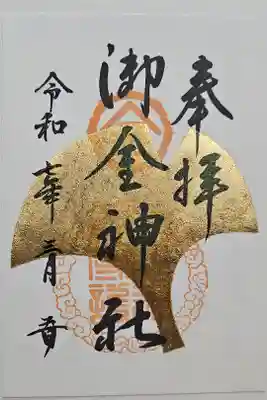 奉拝
御金神社
令和七年三月吉日